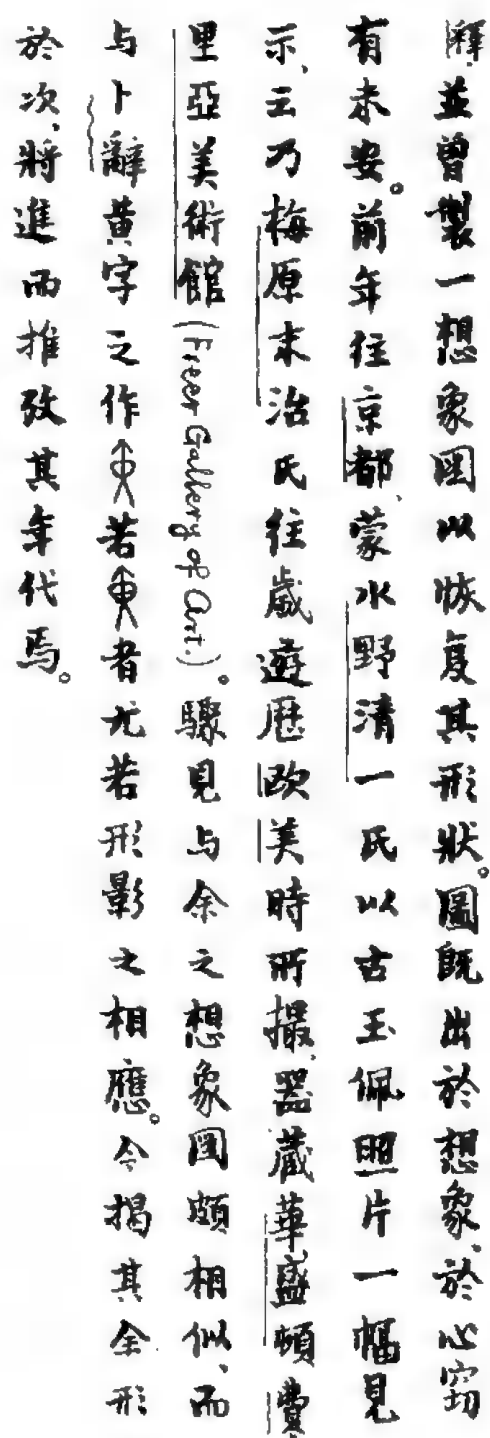 釋,並曾製一想象圖以恢复其形狀。圖既出於想象、於心窃
有未安。前年往京都、蒙水野清一氏以古玉佩照片一幅見
示、云乃梅原末治氏往歲遊歷欧美時所撮、器藏華盛頓費
里亞美術館(Freer Gallery of Art.)。驟見与余之想象圖頗相似、而
与卜辭黄字之作若者尤若形影之相應。今揭其全形
於次、將進而推攷其年代焉。